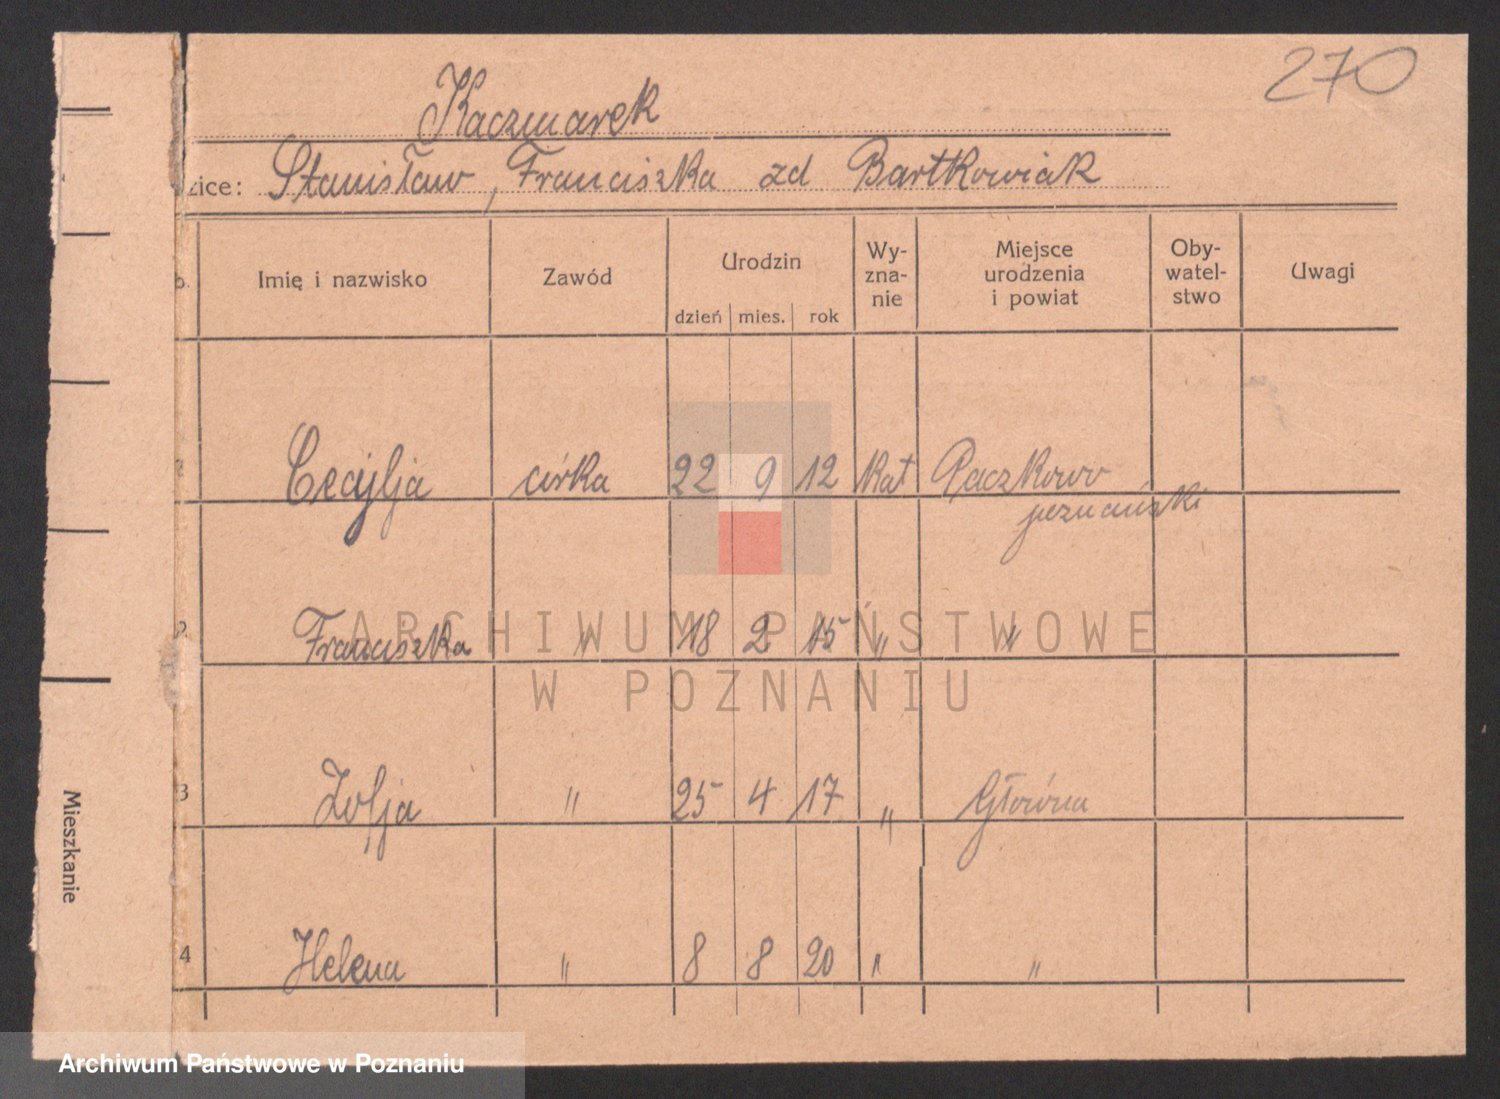 270
Kaczmarek
zice: Stanisław, Franciszka zd Bartkowiak
b. Imię i nazwisko Zawód Urodzin dzień mies. rok Wy-zna-nie Miejsce urodzenia i powiat Oby-watel-stwo Uwagi
Cecylja córka 22 9 12 kat Paczkowo
poznański
2 Franciszka " 18 2 15 " "
3 Zofja " 25 4 17 " Główna
4 Helena " 8 8 20 " "
Mieszkanie
ARCHIWUM PAŃSTWOWE
W POZNANIU
Archiwum Państwowe w Poznaniu